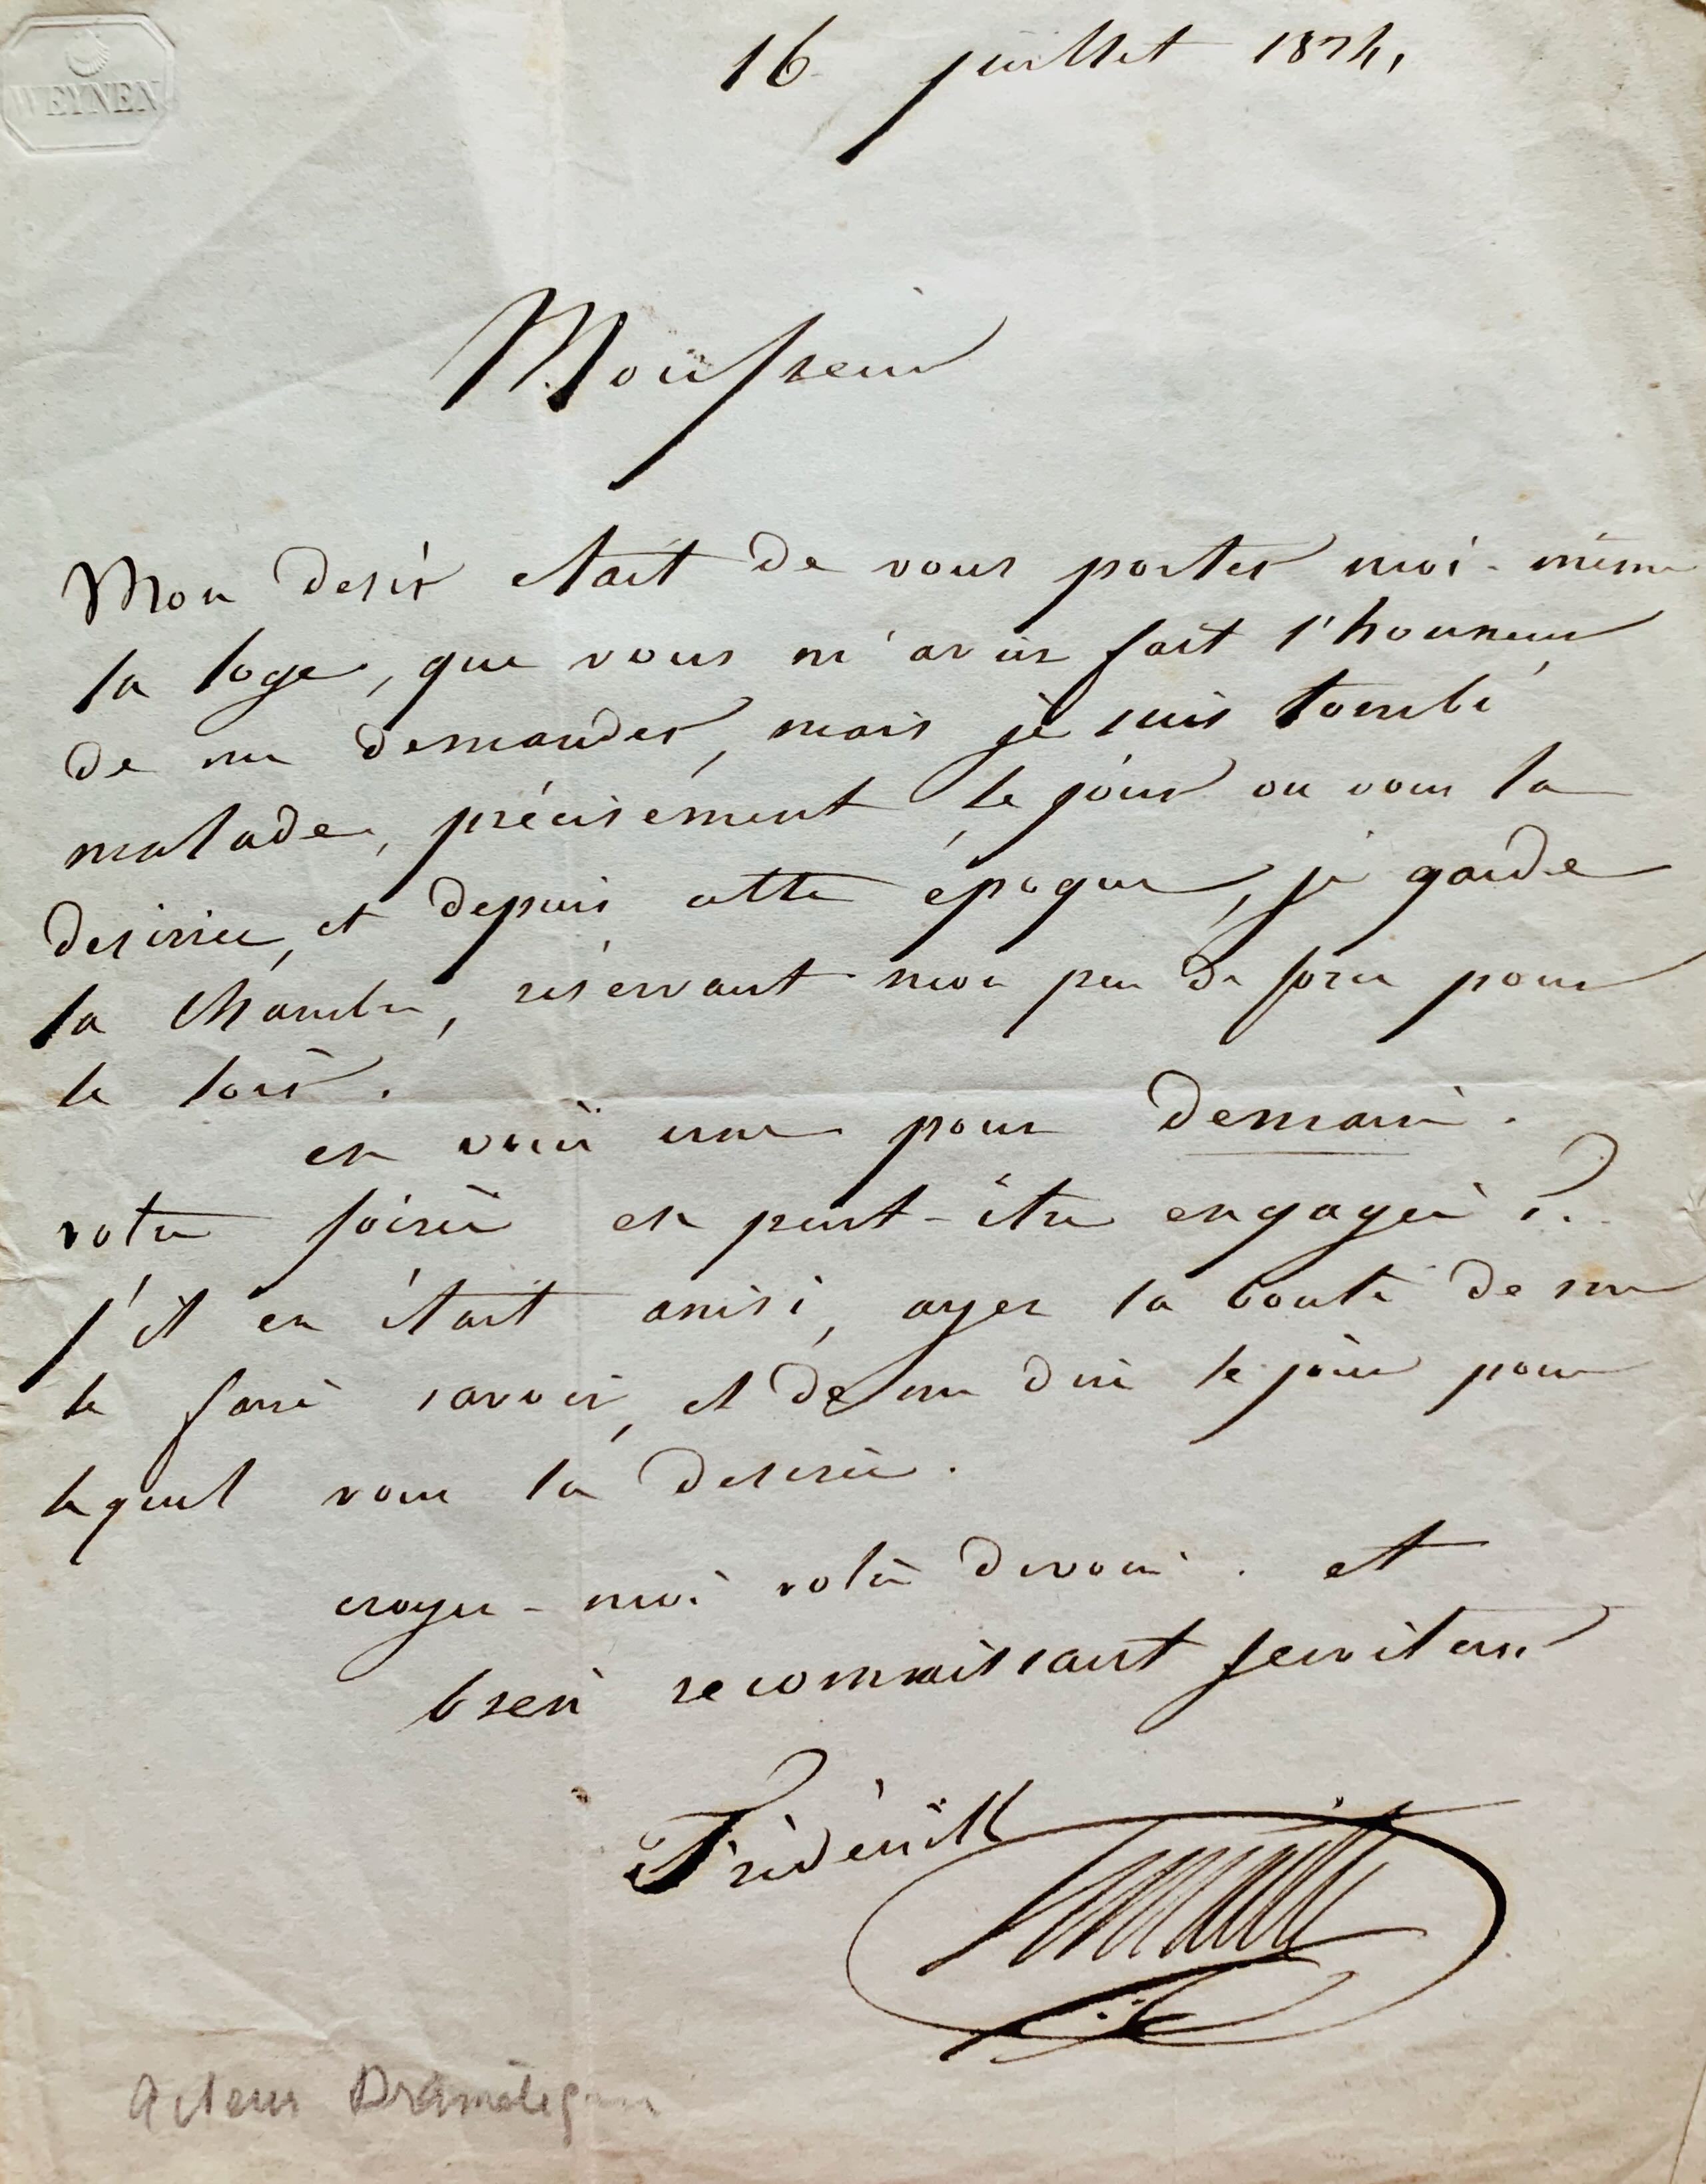 WEYNEN
16 juillet
Monsieur
Mon desir etait de vous porter moi-même
la loge, que vous m'aviez fait l'honneur
de me demander, mais je suis tombé
malade, précisément, le jour ou vous la
desiriez, et depuis cette époque, je garde
la chambre, réservant mon peu de force pour
le soir.
en voici une pour demain.
votre soirée est peut-être engagée ?.
s'il en était ainsi, ayez la bonté de me
le faire savoir, et de me dire le jour pour
lequel vous la desirez.
croyez-moi votre dévoué. et
bien reconnaissant serviteur
Frédérick
Acteur Dramatique